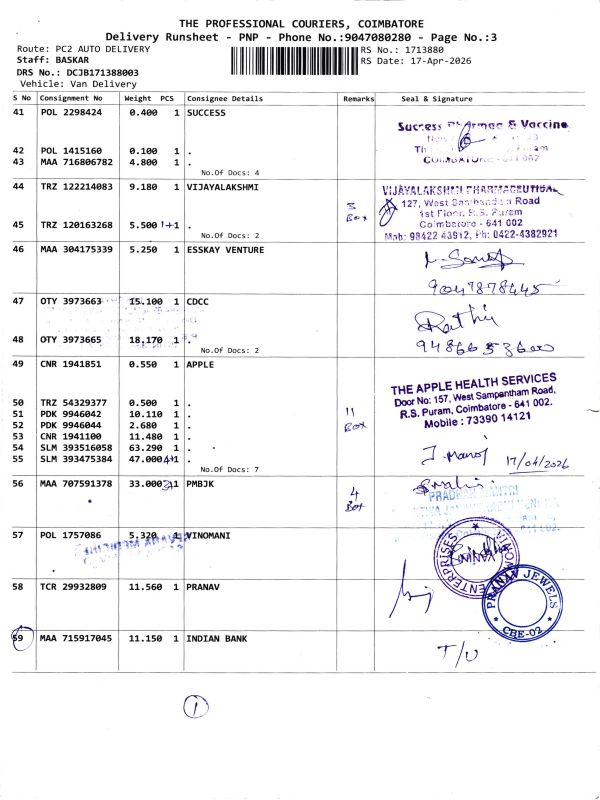 THE PROFESSIONAL COURIERS, COIMBATORE
Delivery Runsheet - PNP - Phone No.:9047080280 - Page No.:3
Route: PC2 AUTO DELIVERY
RS No.: 1713880
Staff: BASKAR
RS Date: 17-Apr-2026
DRS No.: DCJB171388003
Vehicle: Van Delivery
S No Consignment No Weight PCS Consignee Details Remarks Seal & Signature
41 POL 2298424 0.400 1 SUCCESS
Success Pharmaa & Vaccine
COIMBATORE - 641 002
42 POL 1415160 0.100 1 .
43 MAA 716806782 4.800 1 .
No.Of Docs: 4
44 TRZ 122214083 9.180 1 VIJAYALAKSHMI
3 Box
VIJAYALAKSHMI PHARMACEUTICAL
127, West Sambandam Road
1st Floor, R.S. Puram
Coimbatore - 641 002
Mob: 98422 43912, Ph: 0422-4382921
45 TRZ 120163268 5.500 1+1 .
No.Of Docs: 2
46 MAA 304175339 5.250 1 ESSKAY VENTURE
9047878445
47 OTY 3973663 15.100 1 CDCC
48 OTY 3973665 18.170 1 .
No.Of Docs: 2
9486653600
49 CNR 1941851 0.550 1 APPLE
THE APPLE HEALTH SERVICES
Door No: 157, West Sampantham Road,
R.S. Puram, Coimbatore - 641 002.
Mobile : 73390 14121
50 TRZ 54329377 0.500 1 .
51 PDK 9946042 10.110 1 .
11 Box
52 PDK 9946044 2.680 1 .
53 CNR 1941100 11.480 1 .
54 SLM 393516058 63.290 1 .
J. Manoj 17/04/2026
55 SLM 393475384 47.000 4+1 .
No.Of Docs: 7
56 MAA 707591378 33.000 1 PMBJK
4 Box
PRADHAN MANTRI
57 POL 1757086 5.320 1 VINOMANI
ENTERPRISES
58 TCR 29932809 11.560 1 PRANAV
PRANAV JEWELS
CBE-02
59 MAA 715917045 11.150 1 INDIAN BANK
T/U
1